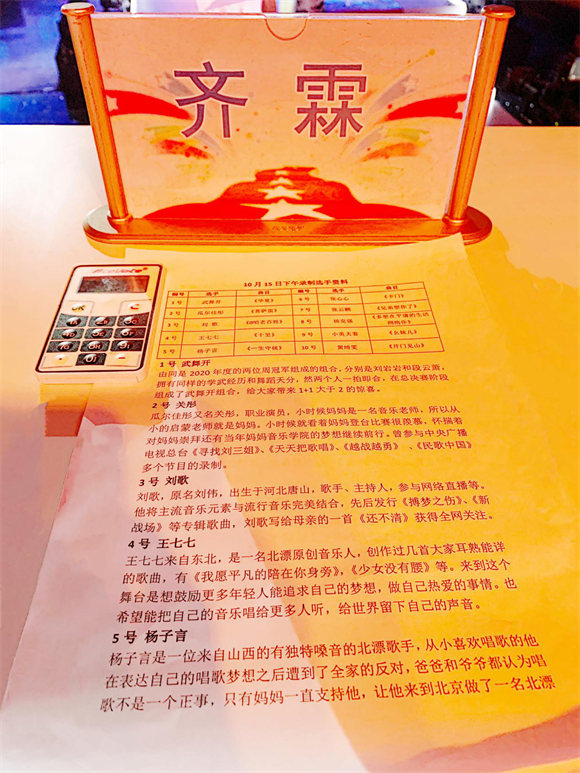 齐 霖
10 月 15 日下午录制选手资料
编号 选手 曲目 编号 选手 曲目
1 号 武舞开 6 号
2 号 瓜尔佳彤 《菩萨蛮》 7 号
3 号 刘 歌 8 号
4 号 王七七 《十里》 9 号 小英夫妻
5 号 杨子言 《一生守候》 10 号 《开门见山》
1 号 武舞开
由同是 2020 年度的两位周冠军组成的组合，分别是刘岩岩和段云霄，
拥有同样的学武经历和舞蹈天分，然两个人一拍即合，在总决赛阶段
组成了武舞开组合，给大家带来 1+1 大于 2 的惊喜。
2 号 关彤
瓜尔佳彤又名关彤，职业演员，小时候妈妈是一名音乐老师，所以从
小的启蒙老师就是妈妈。小时候就看着妈妈登台比赛很羡慕，怀揣着
对妈妈崇拜还有当年妈妈音乐学院的梦想继续前行。曾参与中央广播
电视总台《寻找刘三姐》、《天天把歌唱》、《越战越勇》、《民歌中国》
多个节目的录制。
3 号 刘歌
刘歌，原名刘伟，出生于河北唐山，歌手、主持人，参与网络直播等。
他将主流音乐元素与流行音乐完美结合，先后发行《搏梦之伤》、《新
战场》等专辑歌曲，刘歌写给母亲的一首《还不清》获得全网关注。
4 号 王七七
王七七来自东北，是一名北漂原创音乐人，创作过几首大家耳熟能详
的歌曲，有《我愿平凡的陪在你身旁》，《少女没有腰》等。来到这个
舞台是想鼓励更多年轻人能追求自己的梦想，做自己热爱的事情。也
希望能把自己的音乐唱给更多人听，给世界留下自己的声音。
5 号 杨子言
杨子言是一位来自山西的有独特嗓音的北漂歌手，从小喜欢唱歌的他
在表达自己的唱歌梦想之后遭到了全家的反对，爸爸和爷爷都认为唱
歌不是一个正事，只有妈妈一直支持他，让他来到北京做了一名北漂